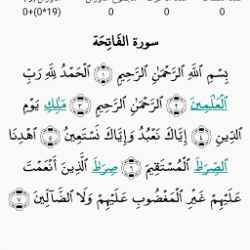 0+(0*19) 0 0 0
سورة الفَاتِحَة
بِسْمِ ٱللَّهِ ٱلرَّحْمَٰنِ ٱلرَّحِيمِ ١ ٱلْحَمْدُ لِلَّهِ رَبِّ
ٱلْعَٰلَمِينَ ٢ ٱلرَّحْمَٰنِ ٱلرَّحِيمِ ٣ مَٰلِكِ يَوْمِ
ٱلدِّينِ ٤ إِيَّاكَ نَعْبُدُ وَإِيَّاكَ نَسْتَعِينُ ٥ ٱهْدِنَا
ٱلصِّرَٰطَ ٱلْمُسْتَقِيمَ ٦ صِرَٰطَ ٱلَّذِينَ أَنْعَمْتَ
عَلَيْهِمْ غَيْرِ ٱلْمَغْضُوبِ عَلَيْهِمْ وَلَا ٱلضَّآلِّينَ ٧